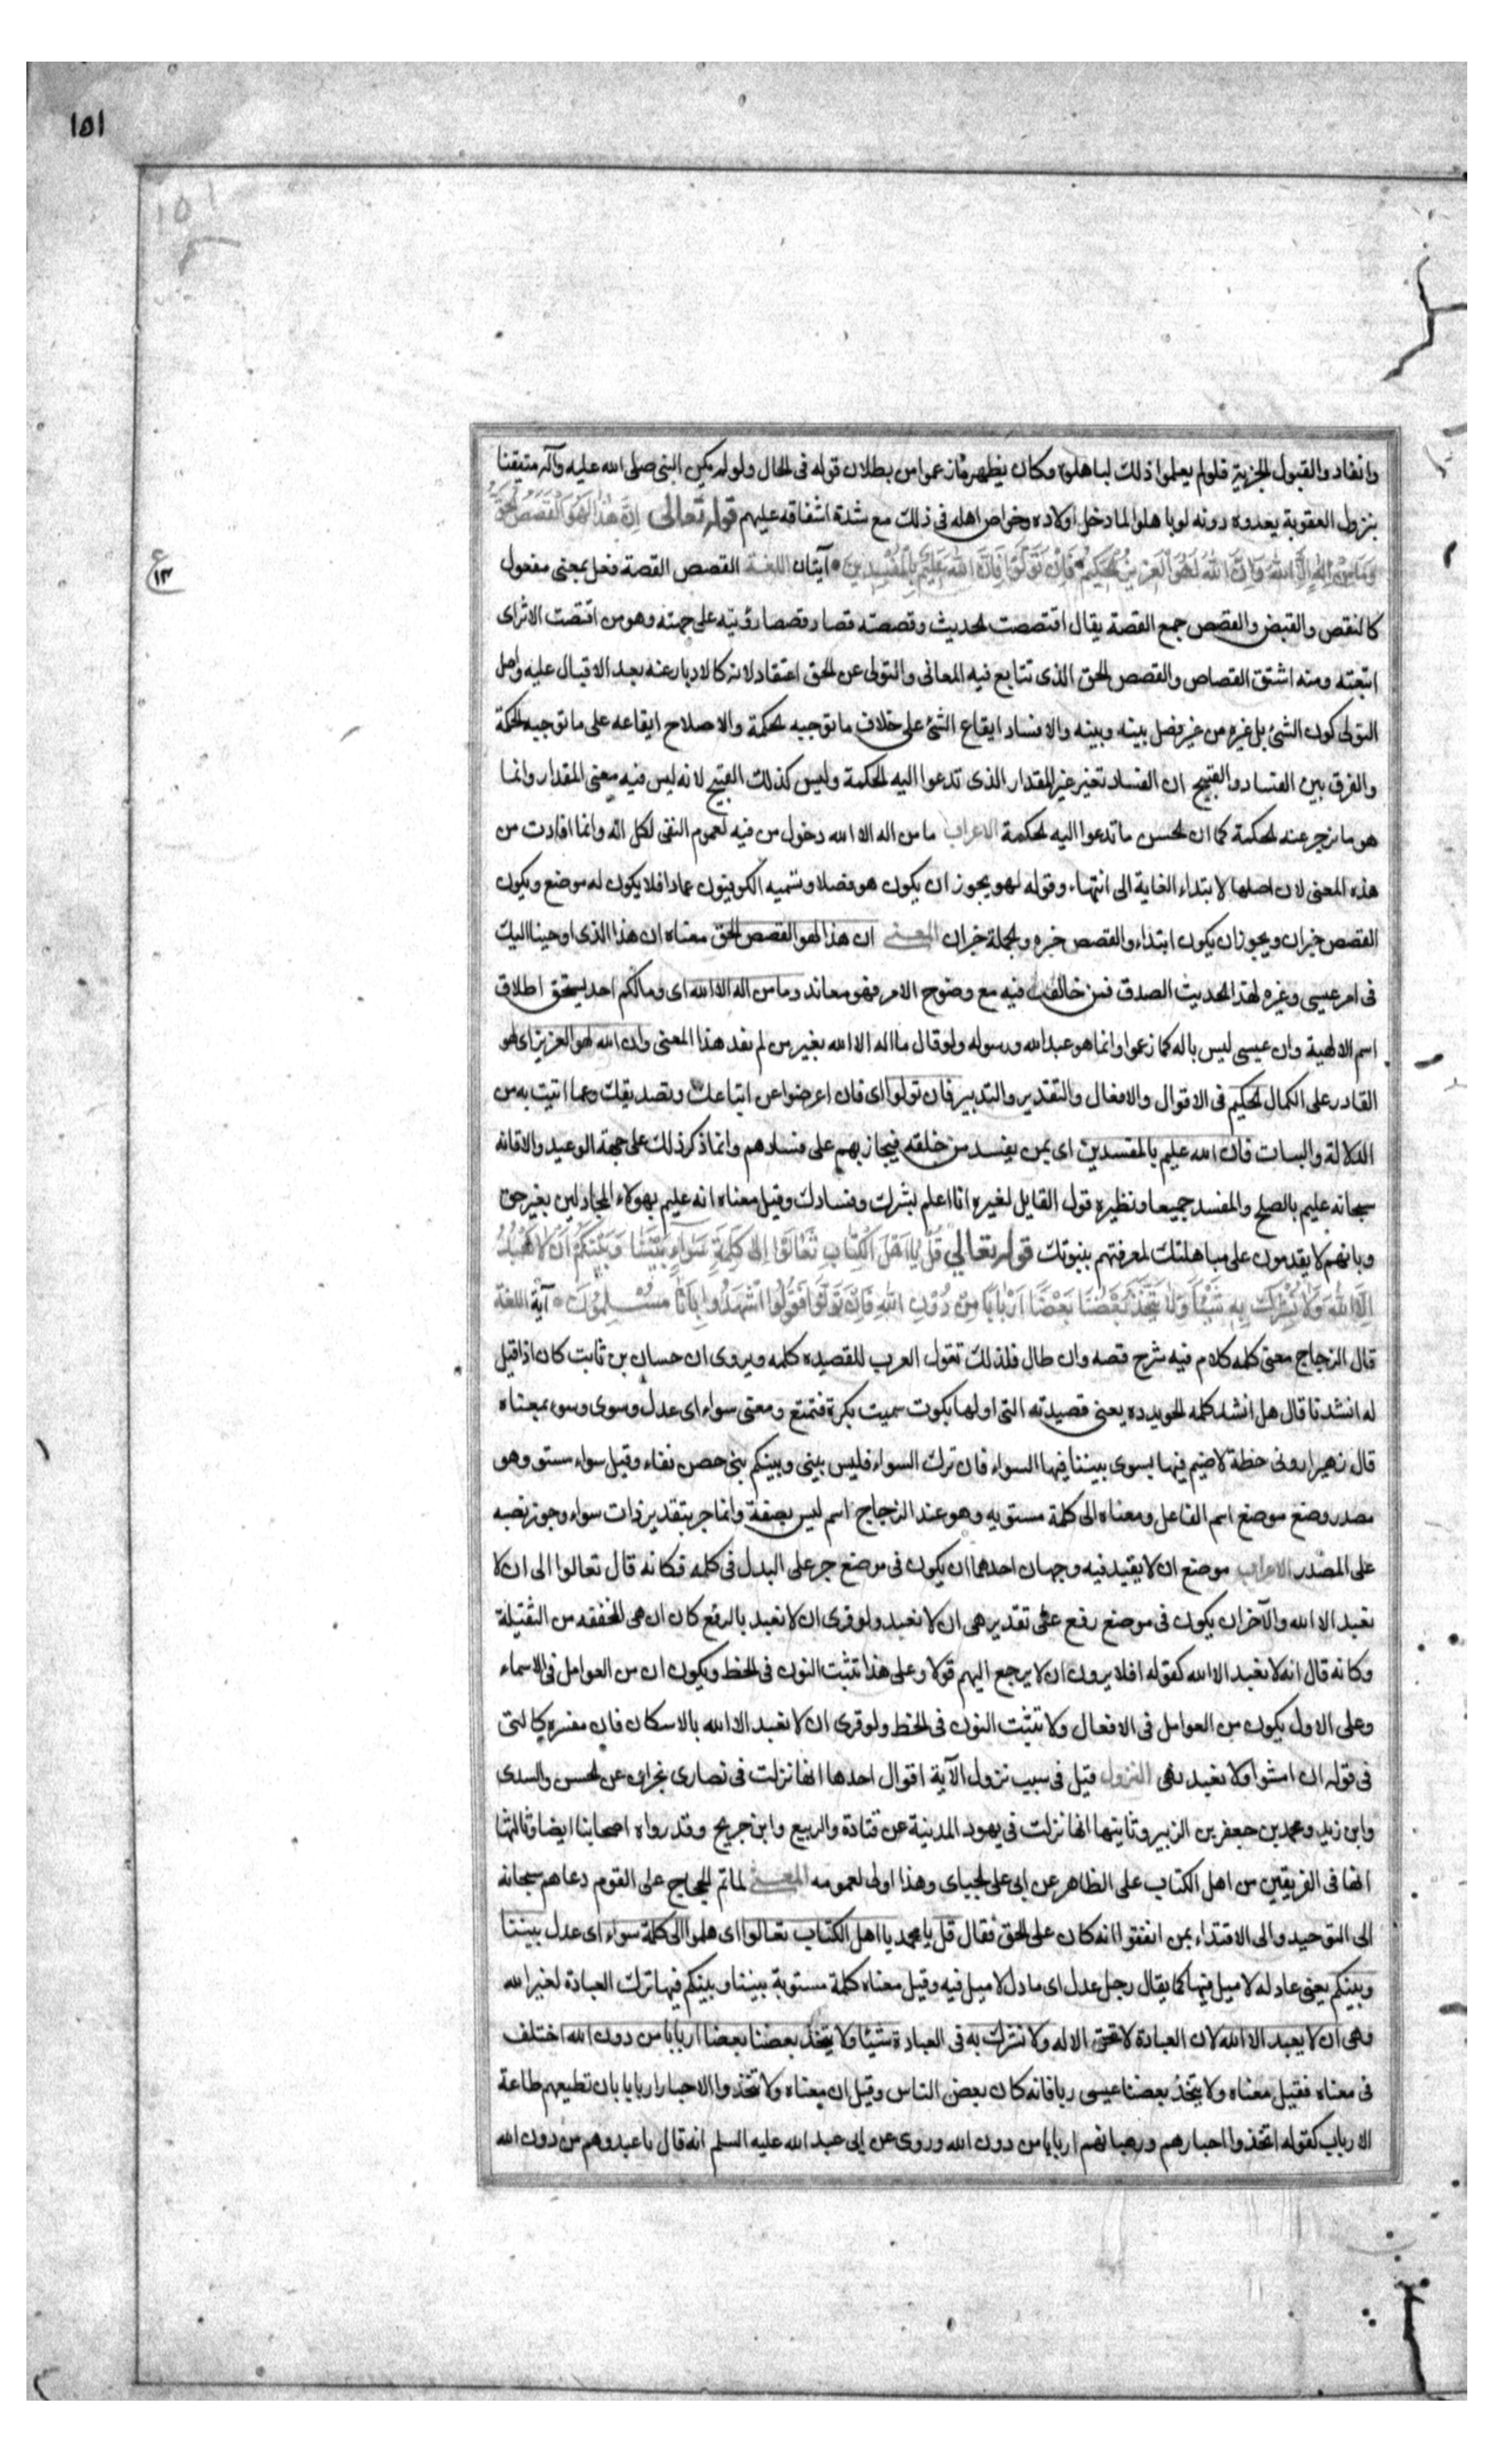 ١٥١
١٥١
وانقاد والقبول الجزية فلو لم يعلموا ذلك لباهلوه وكان يظهر ما زعموا من بطلان قوله فى الحال ولو لم يكن النبى صلى الله عليه وآله متيقنا
بنزول العقوبة بعدوه دونه لو باهلوا لما دخل اولاده وخواص اهله فى ذلك مع شدة اشفاقه عليهم قوله تعالى اِنَّ هٰذَا لَهُوَ الْقَصَصُ الْحَقُّ
وَمَا مِنْ اِلٰهٍ اِلَّا اللّٰهُ وَاِنَّ اللّٰهَ لَهُوَ الْعَزِيزُ الْحَكِيمُ فَاِنْ تَوَلَّوْا فَاِنَّ اللّٰهَ عَلِيمٌ بِالْمُفْسِدِينَ آيتان اللغة القصص القصة فعل بمعنى مفعول
ع ١٣
كالنقص والقبض والقصص جمع القصة يقال اقتصصت الحديث وقصصته قصا وقصصا رويته على جهته وهو من اقتصت الاثر اى
اتبعته ومنه اشتق القصاص والقصص الحق الذى تتابع فيه المعانى والتولى عن الحق اعتقاد لانه كالادبار عنه بعد الاقبال عليه واصل
التولى كون الشئ يلى غيره من غير فصل بينه وبينه والافساد ايقاع الشئ على خلاف ما توجبه الحكمة والاصلاح ايقاعه على ما توجبه الحكمة
والفرق بين الفساد والقبيح ان الفساد تغير عن المقدار الذى تدعوا اليه الحكمة وليس كذلك القبيح لانه ليس فيه معنى المقدار وانما
هو ما تزجر عنه الحكمة كما ان الحسن ما تدعوا اليه الحكمة الاعراب ما من اله الا الله دخول من فيه لعموم النفى لكل اله وانما افادت من
هذه المعنى لان اصلها لابتداء الغاية الى انتهاء وقوله لهو يجوز ان يكون هو فصلا وتسميه الكوفيون عمادا فلا يكون له موضع ويكون
القصص خبر ان ويجوز ان يكون ابتداء والقصص خبره والجملة خبر ان المعنى ان هذا لهو القصص الحق معناه ان هذا الذى اوحينا اليك
فى امر عيسى وغيره لهذا الحديث الصدق فمن خالفك فيه مع وضوح الامر فهو معاند وما من اله الا الله اى وما لكم احد يستحق اطلاق
اسم الالهية وان عيسى ليس باله كما زعموا وانما هو عبد الله ورسوله ولو قال ما اله الا الله بغير من لم يفد هذا المعنى وان الله لهو العزيز اى لهو
القادر على الكمال الحكيم فى الاقوال والافعال والتقدير والتدبير فان تولوا اى فان اعرضوا عن اتباعك وتصديقك وعما اتيت به من
الدلالة والبينات فان الله عليم بالمفسدين اى بمن يفسد من خلقه فيجازيهم على فسادهم وانما ذكر ذلك على جهة الوعيد والا فانه
سبحانه عليم بالمصلح والمفسد جميعا ونظيره قول القايل لغيره انا اعلم بشرك وفسادك وقيل معناه انه عليم بهولاء المجادلين بغير حق
وبانهم لا يقدمون على مباهلتك لمعرفتهم بنبوتك قوله تعالى قُلْ يَا اَهْلَ الْكِتَابِ تَعَالَوْا اِلٰى كَلِمَةٍ سَوَاءٍ بَيْنَنَا وَبَيْنَكُمْ اَنْ لَا نَعْبُدَ
اِلَّا اللّٰهَ وَلَا نُشْرِكَ بِهِ شَيْئًا وَلَا يَتَّخِذَ بَعْضُنَا بَعْضًا اَرْبَابًا مِنْ دُونِ اللّٰهِ فَاِنْ تَوَلَّوْا فَقُولُوا اشْهَدُوا بِاَنَّا مُسْلِمُونَ آية اللغة
قال الزجاج معنى كلمه كلام فيه شرح قصه وان طال فلذلك تقول العرب للقصيده كلمه ويروى ان حسان بن ثابت كان اذا قيل
له انشدنا قال هل انشد كلمه الحويدده يعنى قصيدته التى اولها بكوت سميت بكرة فتمتع ومعنى سواء اى عدل وسوى وسوى بمعناه
قال زهير ارونى خطة لا ضيم فيها يسوى بيننا فيها السواء فان ترك السواء فليس بينى وبينكم بنى حصن نفاء وقيل سواء مستو وهو
مصدر وضع موضع اسم الفاعل ومعناه الى كلمة مستويه وهو عند الزجاج اسم ليس بصفة وانما جر بتقدير ذات سواء وجوز نصبه
على المصدر الاعراب موضع ان لا يقيد فيه وجهان احدهما ان يكون فى موضع جر على البدل فى كلمه فكانه قال تعالوا الى ان لا
نعبد الا الله والآخر ان يكون فى موضع رفع على تقدير هى ان لا نعبد ولو قرى ان لا نعبد بالرفع كان ان هى المخففه من الثقيلة
وكانه قال انه لا نعبد الا الله كقوله افلا يرون ان لا يرجع اليهم قولا وعلى هذا تثبت النون فى الخط ويكون ان من العوامل فى الاسماء
وعلى الاول يكون من العوامل فى الافعال ولا تثبت النون فى الخط ولو قرى ان لا نعبد الا الله بالاسكان فان مفسره كالتى
فى قوله ان امشوا ولا نعبد نهى النزول قيل فى سبب نزول الآية اقوال احدها انها نزلت فى نصارى نجران عن الحسن والسدى
وابن زيد ومحمد بن جعفر بن الزبير وثانيها انها نزلت فى يهود المدينة عن قتادة والربيع وابن جريح وقد رواه اصحابنا ايضا وثالثها
انها فى الفريقين من اهل الكتاب على الظاهر عن ابى على الجباى وهذا اولى لعمومه المعنى لما تم الحجاج على القوم دعاهم سبحانه
الى التوحيد والى الاقتداء بمن اتفقوا انه كان على الحق فقال قل يا محمد يا اهل الكتاب تعالوا اى هلموا الى كلمة سواء اى عدل بيننا
وبينكم يعنى عادله لا ميل فيها كما يقال رجل عدل اى عادل لا ميل فيه وقيل معناه كلمة مستوية بيننا وبينكم فيها ترك العبادة لغير الله
وهى ان لا يعبد الا الله لان العبادة لا تحق الا له ولا نشرك به فى العبادة شيئا ولا يتخذ بعضنا بعضا اربابا من دون الله اختلف
فى معناه فقيل معناه ولا يتخذ بعضنا عيسى ربا فانه كان بعض الناس وقيل ان معناه ولا نتخذوا الاحبار اربابا بان نطيعهم طاعة
الارباب كقوله اتخذوا احبارهم ورهبانهم اربابا من دون الله وروى عن ابى عبد الله عليه السلم انه قال ما عبدوهم من دون الله